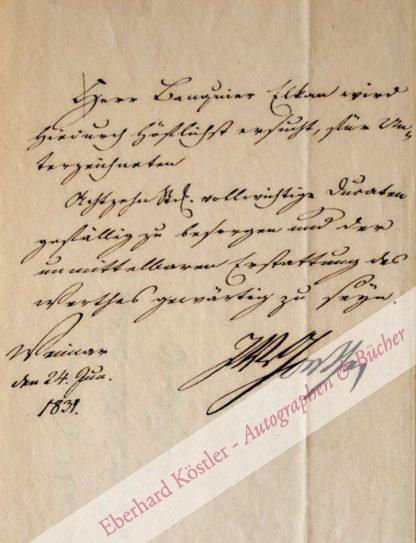 Herr Banquier Elkan wird
hiedurch höflichst ersucht, für Un-
terzeichneten
Achtzehn Stck. vollwichtige Ducaten
gefällig zu besorgen und der
unmittelbaren Erstattung des
Werthes gewärtig zu seyn.
Weimar
den 24. Jun.
1831.
JWGoethe
Eberhard Köstler - Autographen & Bücher